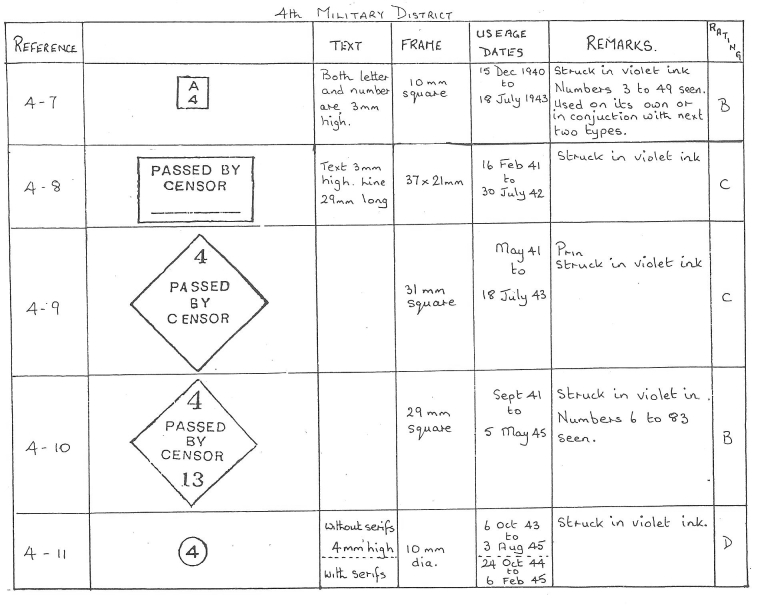 4th MILITARY DISTRICT
REFERENCE
TEXT
FRAME
USEAGE
DATES
REMARKS.
RATING
4-7
A
4
Both letter
and number
are 3mm
high.
10mm
square
15 Dec 1940
to
18 July 1943
Struck in violet ink
Numbers 3 to 49 seen.
Used on its own or
in conjuction with next
two types.
B
4-8
PASSED BY
CENSOR
Text 3mm
high. Line
29mm long
37x21mm
16 Feb 41
to
30 July 42
Struck in violet ink
C
4-9
4
PASSED
BY
CENSOR
31 mm
square
May 41
to
18 July 43
Prin
Struck in violet ink
C
4-10
4
PASSED
BY
CENSOR
13
29 mm
square
Sept 41
to
5 May 45
Struck in violet in.
Numbers 6 to 83
seen.
B
4-11
4
without serifs
4mm high
with serifs
10 mm
dia.
6 Oct 43
to
3 Aug 45
24 Oct 44
to
6 Feb 45
Struck in violet ink.
D